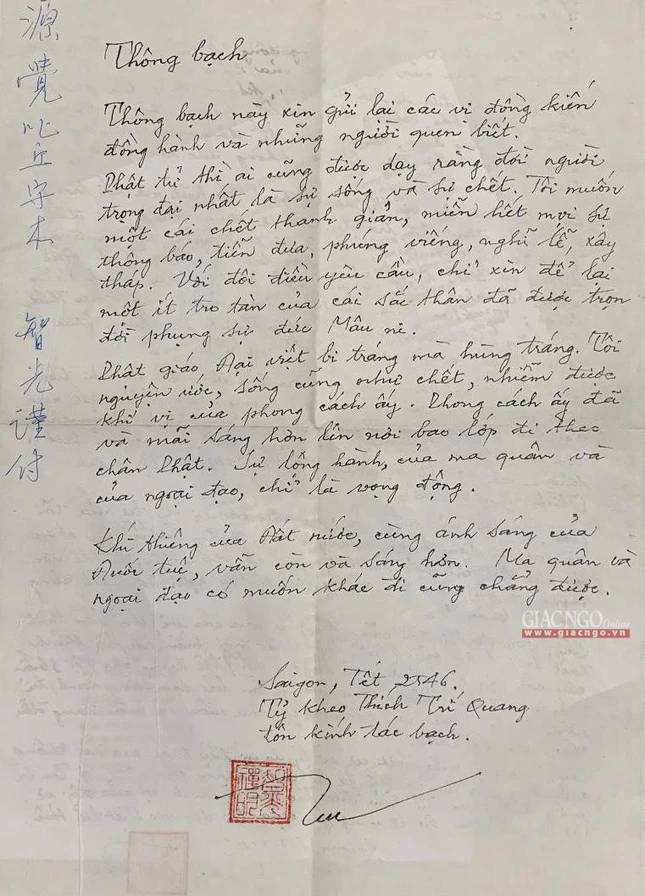 源覺比丘守本 智光謹付
Thông bạch
Thông bạch này xin gửi lại các vị đồng kiến
đồng hành và những người quen biết.
Phật tử thì ai cũng được dạy rằng đời người
trọng đại nhất là sự sống và sự chết. Tôi muốn
một cái chết thanh giản, miễn hết mọi sự
thông báo, tiễn đưa, phúng viếng, nghi lễ, xây
tháp. Với đôi điều yêu cầu, chỉ xin để lại
một ít tro tàn của cái sắc thân đã được trọn
đời phụng sự đức Mâu ni.
Phật giáo Đại việt bi tráng mà hùng tráng. Tôi
nguyện ước, sống cũng như chết, nhiễm được
khí vị của phong cách ấy. Phong cách ấy đã
và mãi sáng hơn lên nơi bao lớp đi theo
chân Phật. Sự lồng hành, của ma quân và
của ngoại đạo, chỉ là vọng động.
Khí thiêng của Đất nước, cùng ánh sáng của
Đuốc tuệ, vẫn còn và sáng hơn. Ma quân và
ngoại đạo có muốn khác đi cũng chẳng được.
GIACNGO Online
www.giacngo.vn
Saigon, Tết 2546.
Tỷ kheo Thích Trí Quang
tôn kính tác bạch.